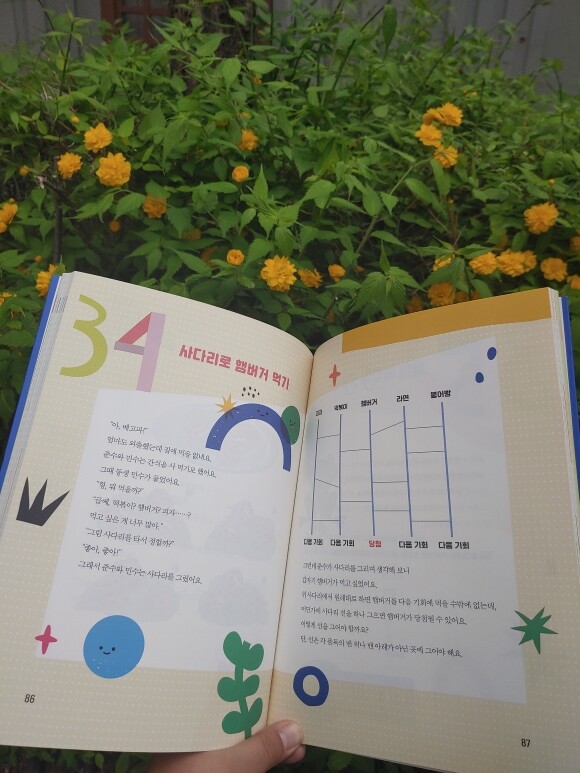 34
사다리로 햄버거 먹기
"아, 배고파!"
엄마도 외출했는데 집에 먹을 게 없네요.
준수와 민수는 간식을 사 먹기로 했어요.
그때 동생 민수가 물었어요.
"형, 뭐 먹을까?"
"글쎄, 떡볶이? 햄버거? 피자……?
먹고 싶은 게 너무 많아."
"그럼 사다리를 타서 정할까?"
"좋아, 좋아!"
그래서 준수와 민수는 사다리를 그렸어요.
86
피자 떡볶이 햄버거 라면 붕어빵
다음 기회 다음 기회 당첨 다음 기회 다음 기회
그런데 준수가 사다리를 그리며 생각해 보니
갑자기 햄버거가 먹고 싶었어요.
위 사다리에서 원래대로 하면 햄버거를 다음 기회에 먹을 수밖에 없는데,
어딘가에 사다리 선을 하나 그으면 햄버거가 당첨될 수 있어요.
어떻게 선을 그어야 할까요?
단, 선은 각 음식의 맨 위나 맨 아래가 아닌 곳에 그어야 해요.
87